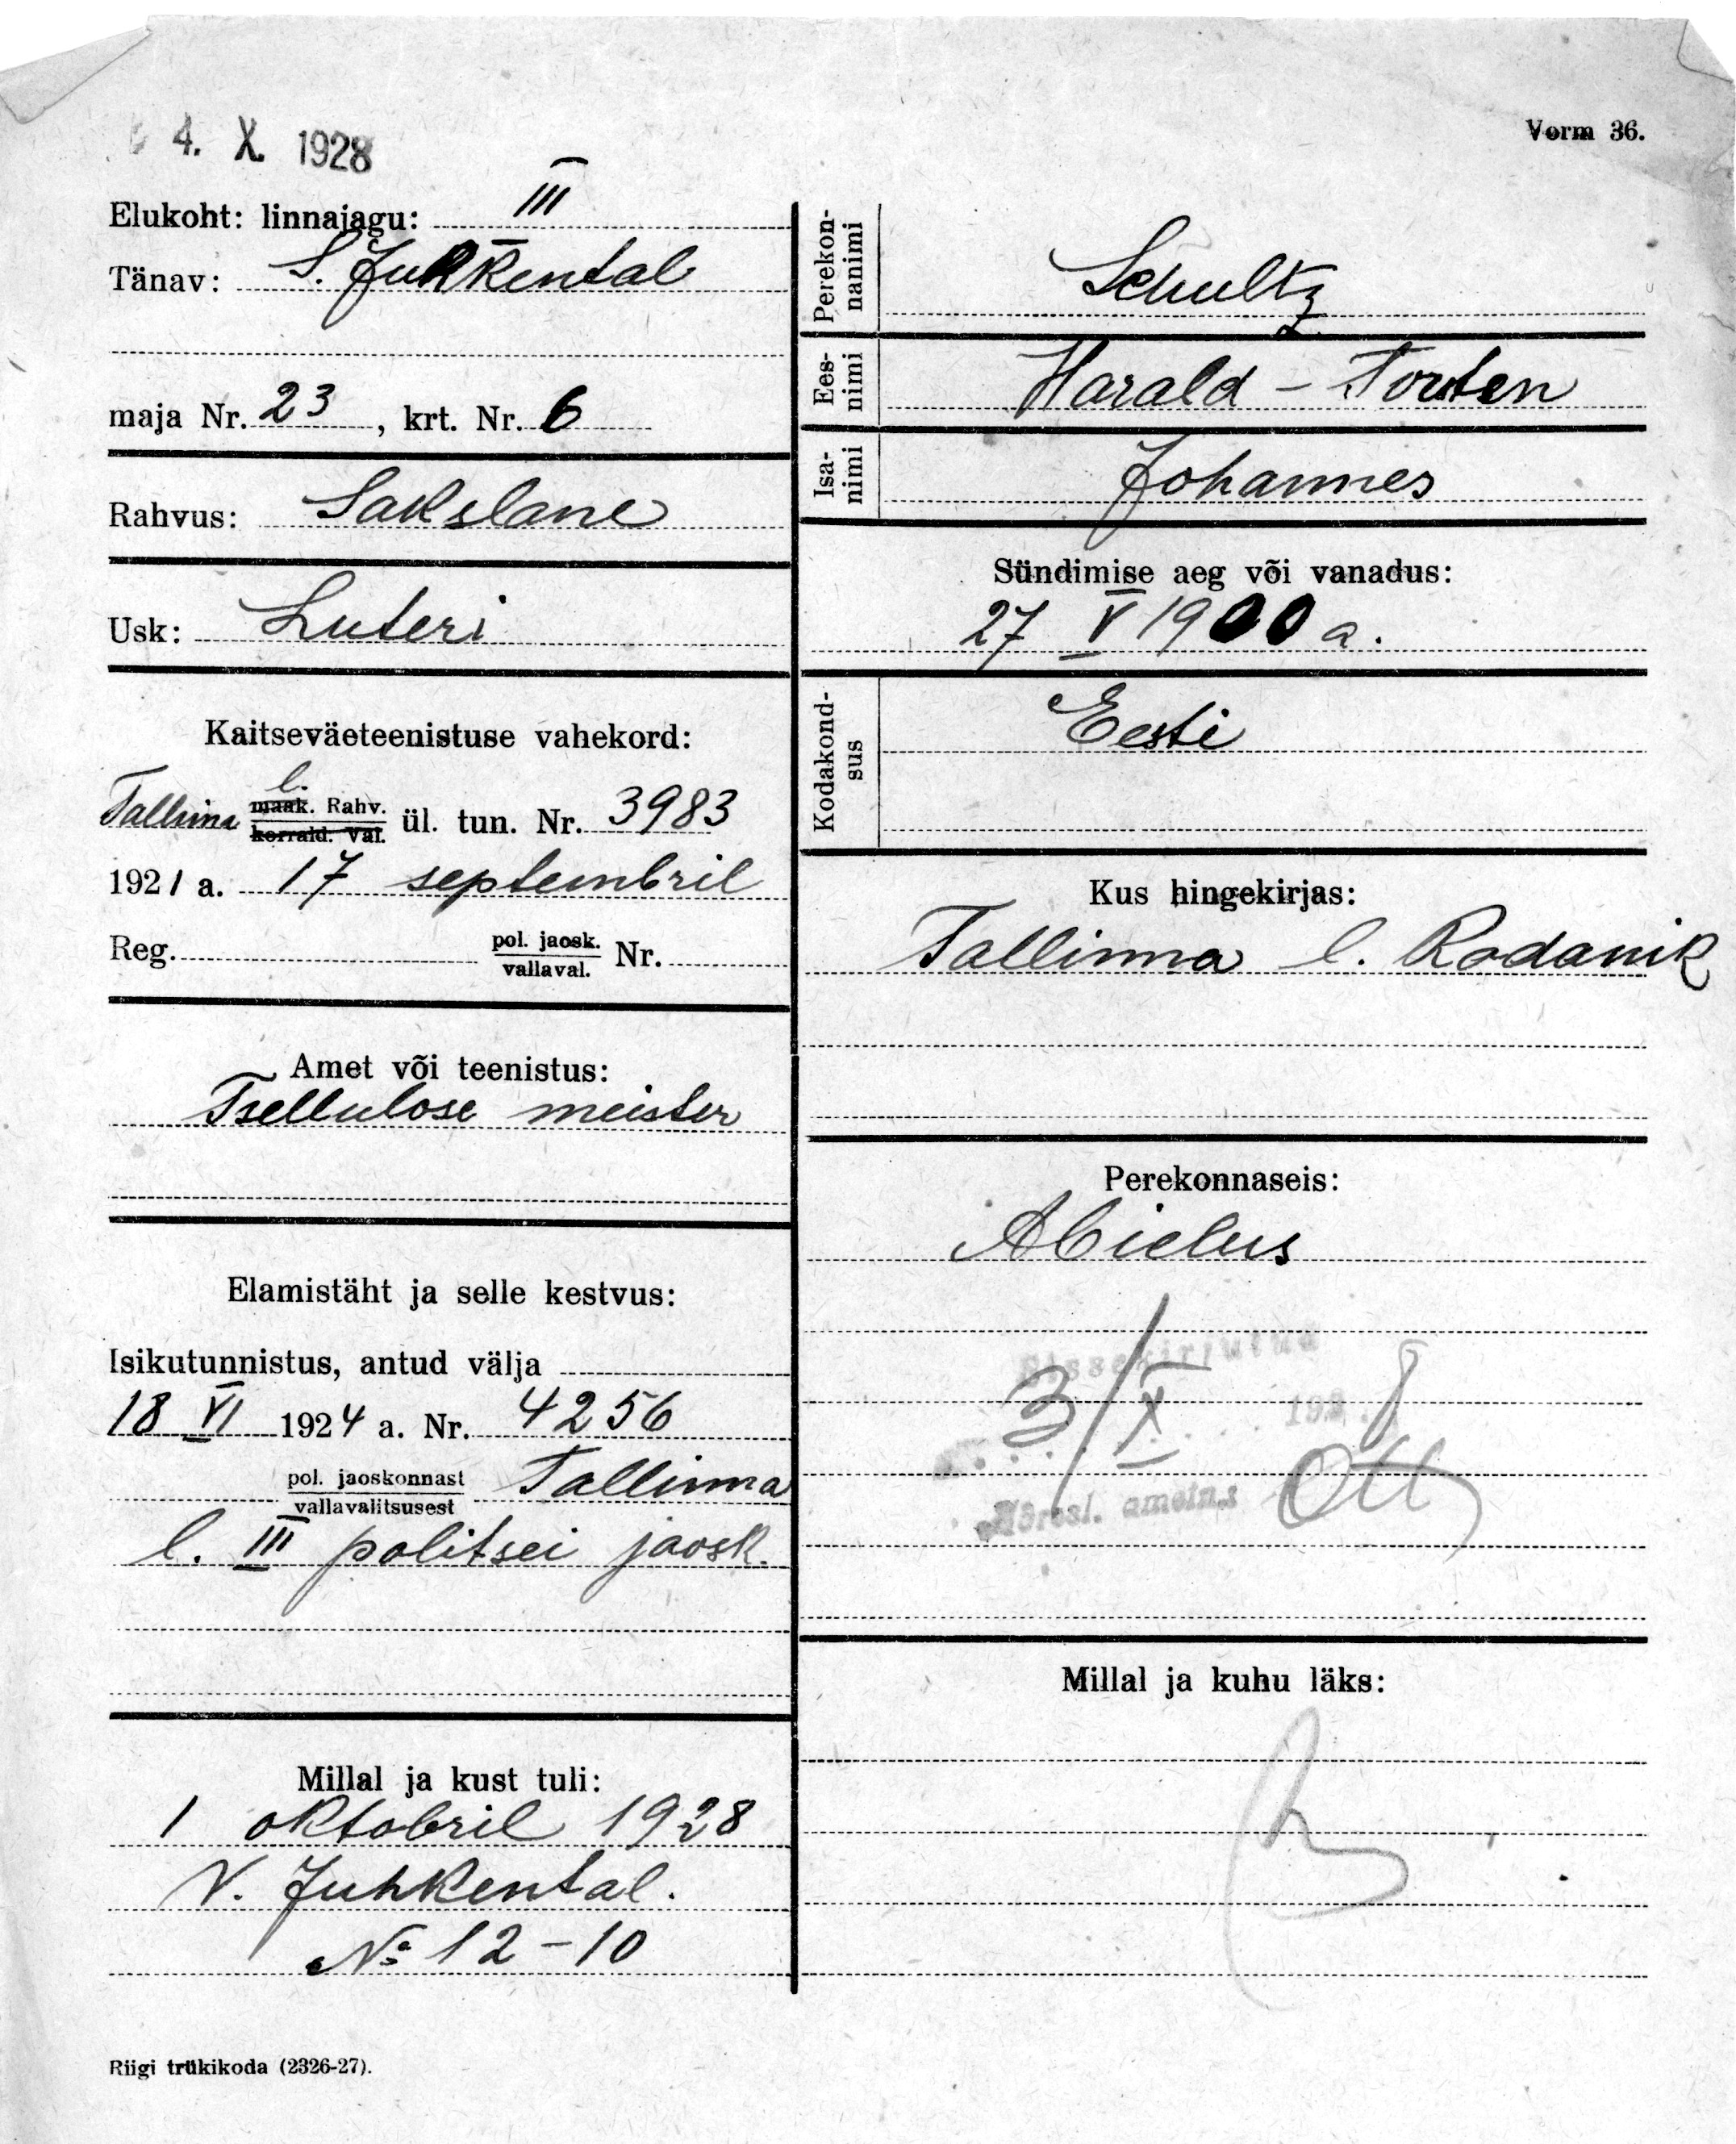 4. X. 1928
Vorm 36.
Elukoht: linnajagu: III
Tänav: S. Juhkental
maja Nr. 23, krt. Nr. 6
Rahvus: Sakslane
Usk: Luteri
Kaitseväeteenistuse vahekord:
Tallinna l.
maak. Rahv.
korrald. Val. ül. tun. Nr. 3983
1921 a. 17 septembril
Reg. pol. jaosk.
vallaval. Nr.
Amet või teenistus:
Tsellulose meister
Elamistäht ja selle kestvus:
Isikutunnistus, antud välja
18 VI 1924 a. Nr. 4256
pol. jaoskonnast
vallavalitsusest Tallinna
l. III politsei jaosk.
Millal ja kust tuli:
1 oktobril 1928
V. Juhkental.
№ 12-10
Riigi trükikoda (2326-27).
Perekon-
nanimi
Schultz
Ees-
nimi
Harald -
Isa-
nimi
Johannes
Sündimise aeg või vanadus:
27 V 1900 a.
Kodakond-
sus
Eesti
Kus hingekirjas:
Tallinna l. Kodanik
Perekonnaseis:
Abielus
Sissekirjutud
3/X 192.8
ametn. Ott
Millal ja kuhu läks: